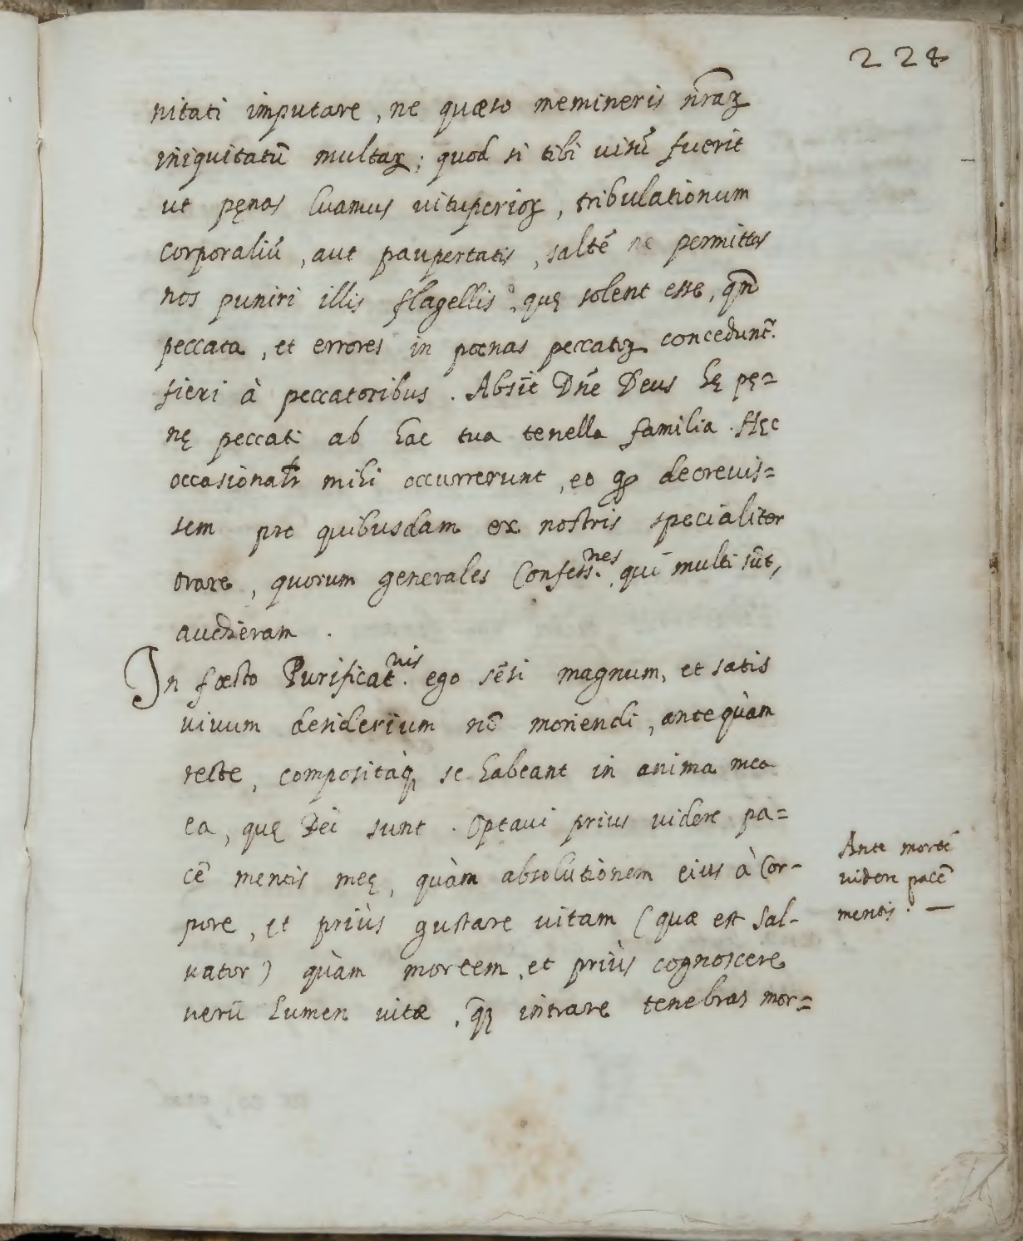 228
nitati imputare, ne quæso memineris nr̃aꝝ
iniquitatũ multaꝝ; quod si tibi uisũ fuerit
ut pęnas luamus uituperioꝝ, tribulationum
corporaliũ, aut paupertatis, saltẽ ne permittas
nos puniri illis flagellis, quę solent esse, qñ
peccata, et errores in pœnas peccatoꝝ concedunt͂.
fieri à peccatoribus. Absit Dñe Deus hę pę=
nę peccati ab hac tua tenella familia. Hęc
occasionalr̃ mihi occurrerunt, eo ꝙ decreuis=
sem pre quibusdam ex nostris specialiter
orare, quorum generales Confess.nes, qui multi sũt,
audieram.
In fæsto Purificat.nis ego sẽsi magnum, et satis
uiuum desiderium nõ moriendi, antequàm
recte, compositaq́ꝫ se habeant in anima mea
ea, quę Dei sunt. Optaui prius uidere pa=
cẽ mentis meę, quàm absolutionem eius à Cor-
pore, et priùs gustare uitam (quæ est Sal-
uator) quàm mortem, et priùs cognoscere
uerũ Lumen uitæ, q̃ꝫ intrare tenebras mor=
Ante mortẽ
uidere pacẽ
mentis. —